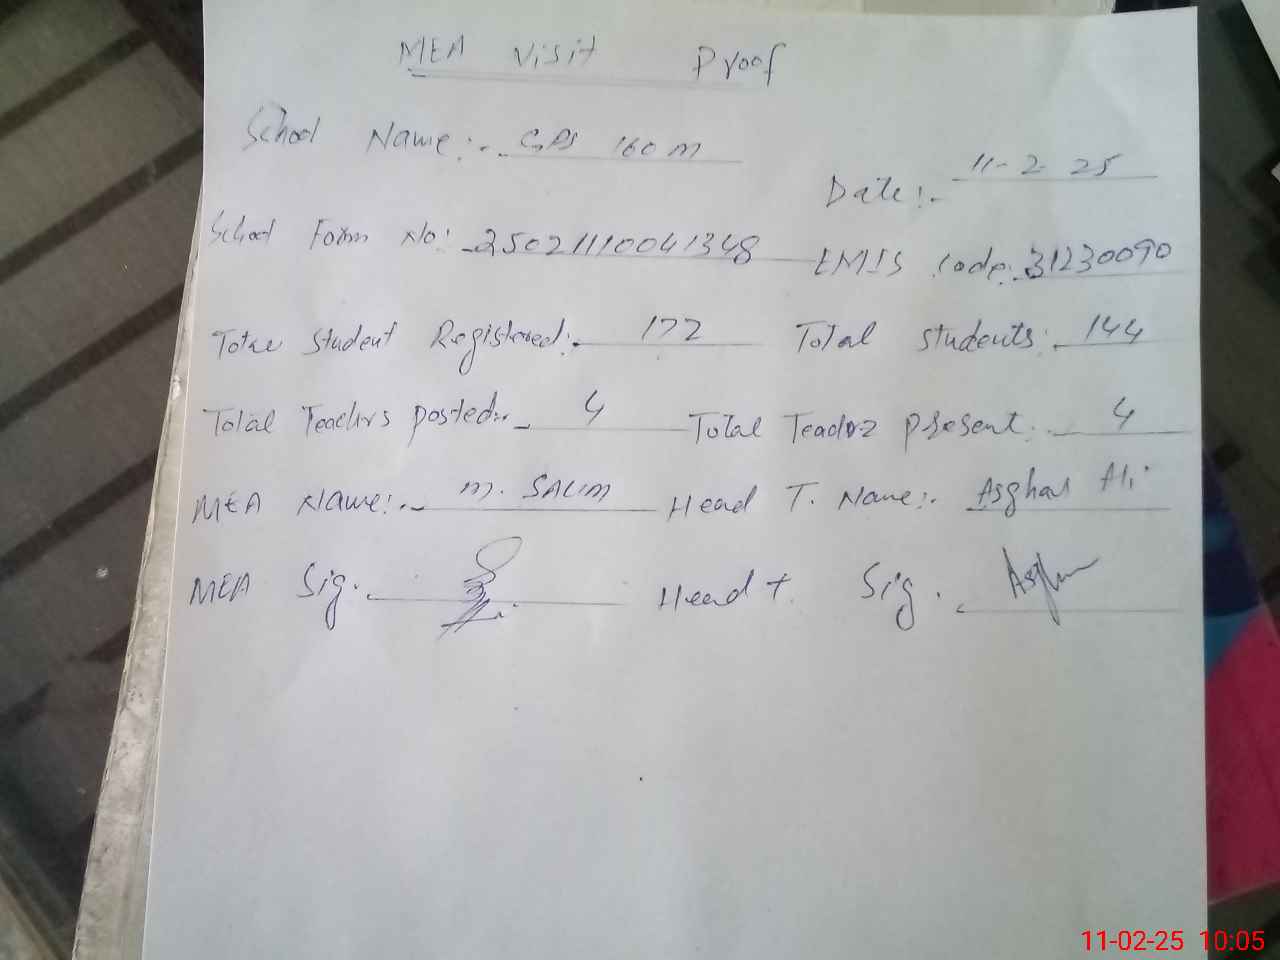 MEA Visit Proof
School Name:- GPS 160 M
Date:- 11-2-25
School Form No: 25021110041348 EMIS Code: 31230090
Total Student Registered:- 172 Total Students: 144
Total Teachrs posted:- 4 Total Teachrz present:- 4
MEA Name:- M. SALIM Head T. Name:- Asghar Ali
MEA Sig. Head t. Sig. Asghar
11-02-25 10:05